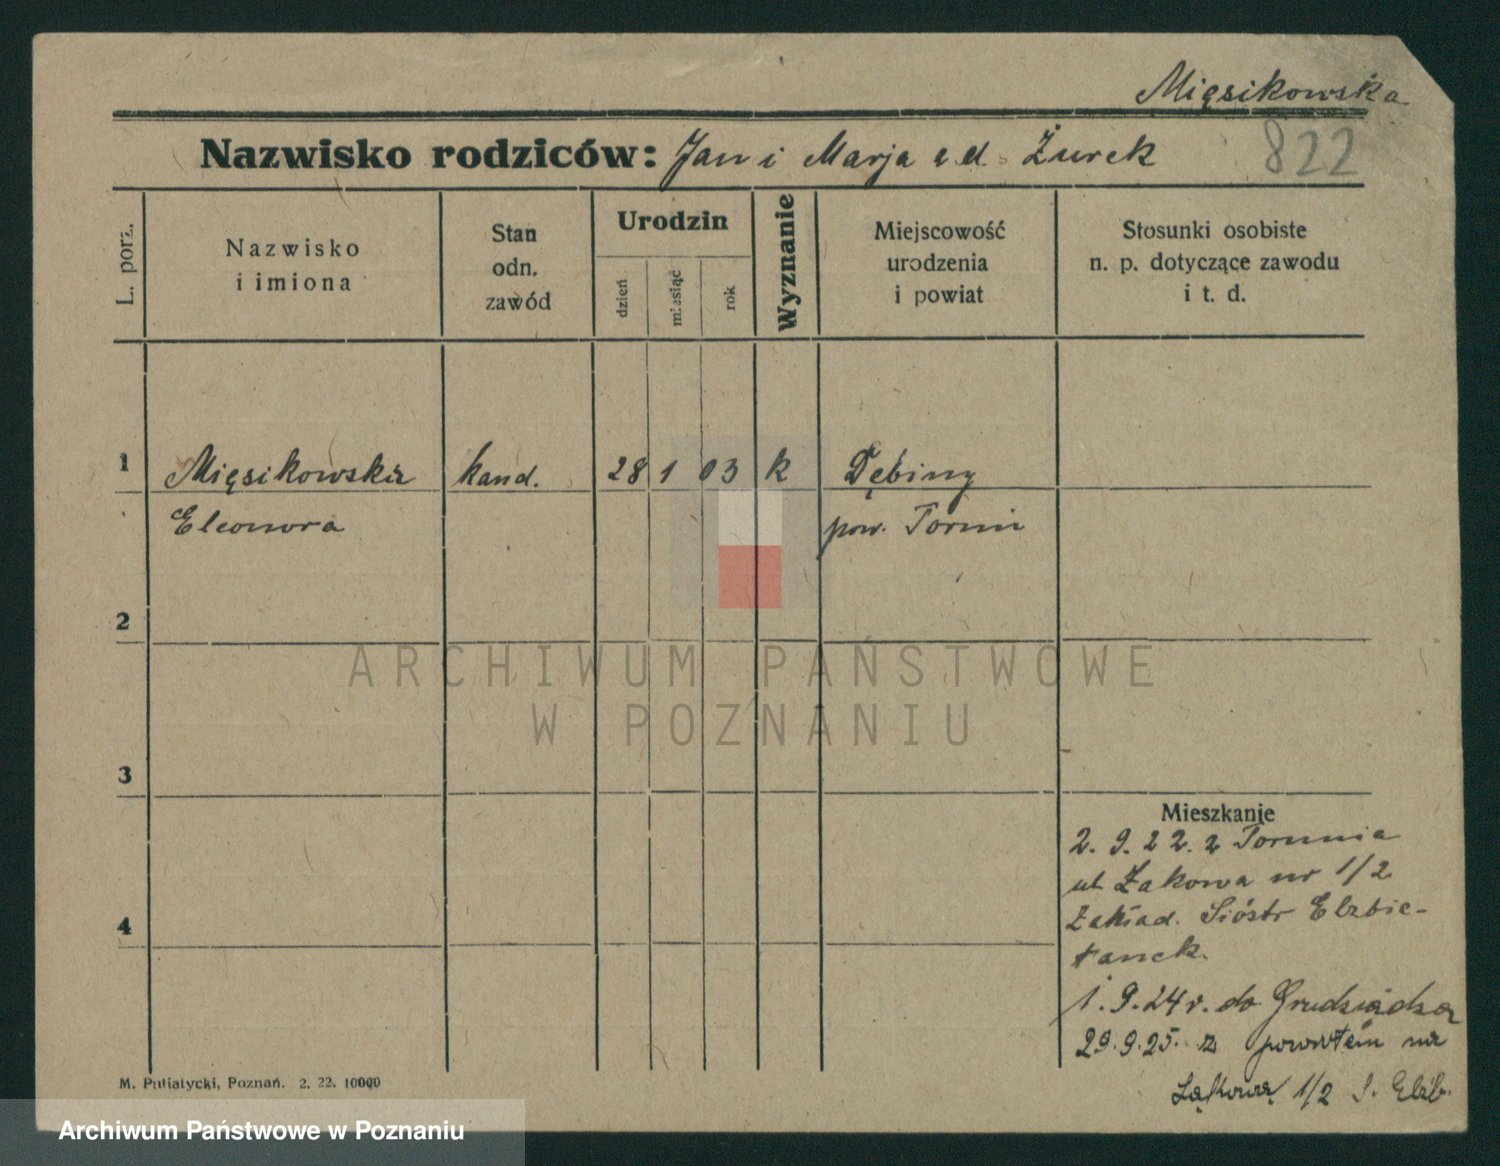 Mięsikowska
Nazwisko rodziców: Jan i Marja z d. Żurek
822
L. porz.
Nazwisko
i imiona
Stan
odn.
zawód
Urodzin
dzień
miesiąc
rok
Wyznanie
Miejscowość
urodzenia
i powiat
Stosunki osobiste
n. p. dotyczące zawodu
i t. d.
1 Mięsikowska kand. 28 1 03 k Dębiny
Eleonora pow. Toruń
2
ARCHIWUM PAŃSTWOWE
W POZNANIU
3
Mieszkanie
2. 9. 22. z Torunia
ul. Łąkowa nr 1/2
4
Zakład. Sióstr Elzbie-
tanek.
1. 9. 24 r. do Grudziądza
29. 9. 25. z powrotem na
Łąkową 1/2 S. Elżb.
M. Putiatycki, Poznań. 2. 22. 10000
Archiwum Państwowe w Poznaniu